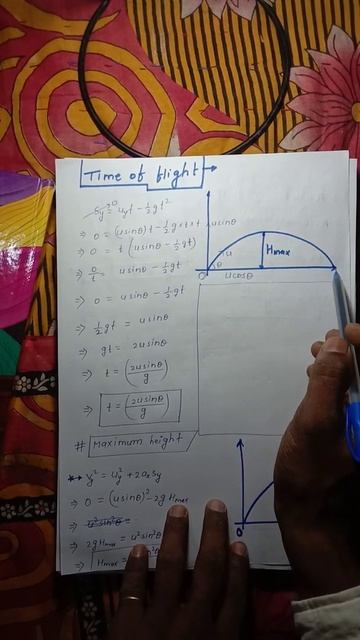 Time of flight →
Sy = uyt - ½gt²
⇒ 0 = (usinθ)t - ½g×t×t
⇒ 0 = t (usinθ - ½gt)
⇒ 0/t = usinθ - ½gt
⇒ 0 = usinθ - ½gt
⇒ ½gt = usinθ
⇒ gt = 2usinθ
⇒ t = (2usinθ/g)
⇒ t = (2usinθ/g)
usinθ
u
θ
Hmax
O
ucosθ
# Maximum height
vy² = uy² + 2aySy
⇒ 0 = (usinθ)² - 2gHmax
⇒ u²sin²θ
⇒ 2gHmax = u²sin²θ
⇒ Hmax =
O